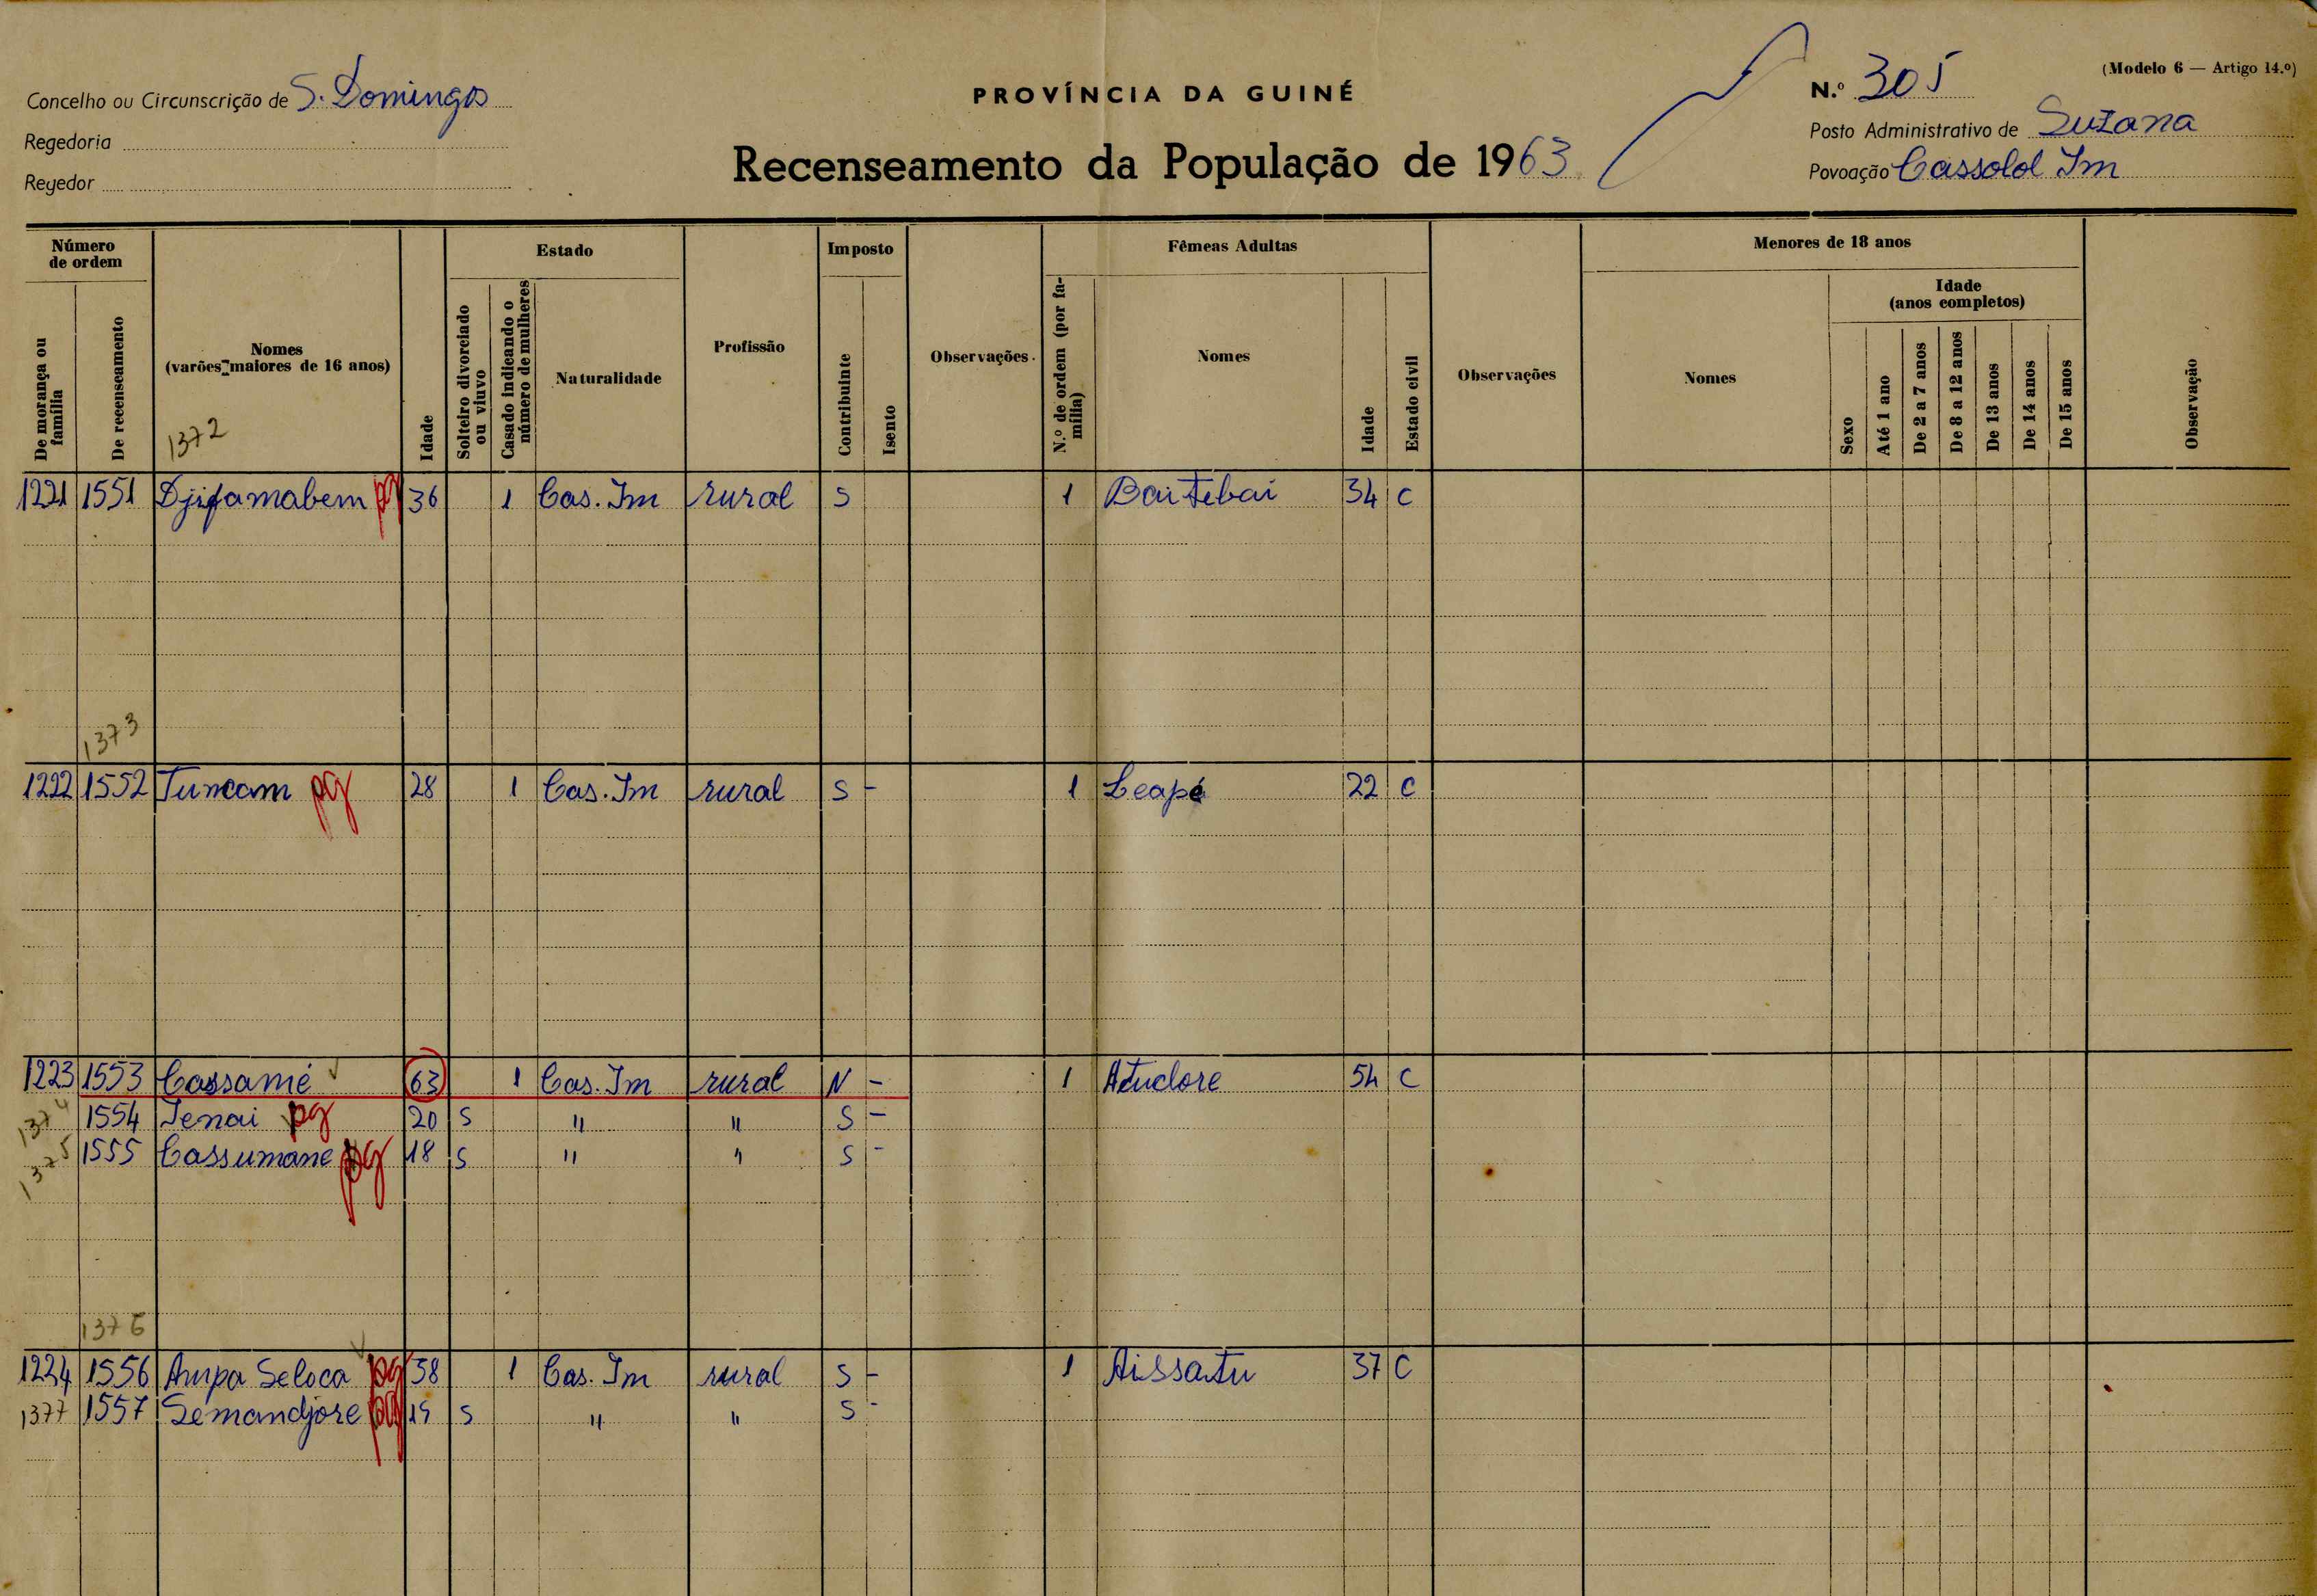 (Modelo 6 — Artigo 14.º)
Concelho ou Circunscrição de S. Domingos
PROVÍNCIA DA GUINÉ
N.º 305
Regedoria
Posto Administrativo de Suzana
Regedor
Recenseamento da População de 1963
Povoação Cassolol Im
Número de ordem
De morança ou família
De recenseamento
Nomes
(varões maiores de 16 anos)
1372
Idade
Estado
Solteiro divorciado ou viuvo
Casado indicando o número de mulheres
Naturalidade
Profissão
Imposto
Contribuinte
Isento
Observações
Fêmeas Adultas
N.º de ordem (por família)
Nomes
Idade
Estado civil
Observações
Menores de 18 anos
Nomes
Sexo
Idade
(anos completos)
Até 1 ano
De 2 a 7 anos
De 8 a 12 anos
De 13 anos
De 14 anos
De 15 anos
Observação
1221 1551 Djifamabem pg 36 1 Cas. Im rural S 1 Baitebai 34 C
1373
1222 1552 Tuncam pg 28 1 Cas. Im rural S - 1 Leapé 22 C
1223 1553 Cassamé 63 1 Cas. Im rural N - 1 Atudore 54 C
1374 1554 Jenai pg 20 S " " S -
1375 1555 Cassumane pg 18 S " " S -
1376
1224 1556 Ampa Seloca pg 38 1 Cas. Im rural S - 1 Aissatu 37 C
1377 1557 Semandjore pg 19 S " " S -